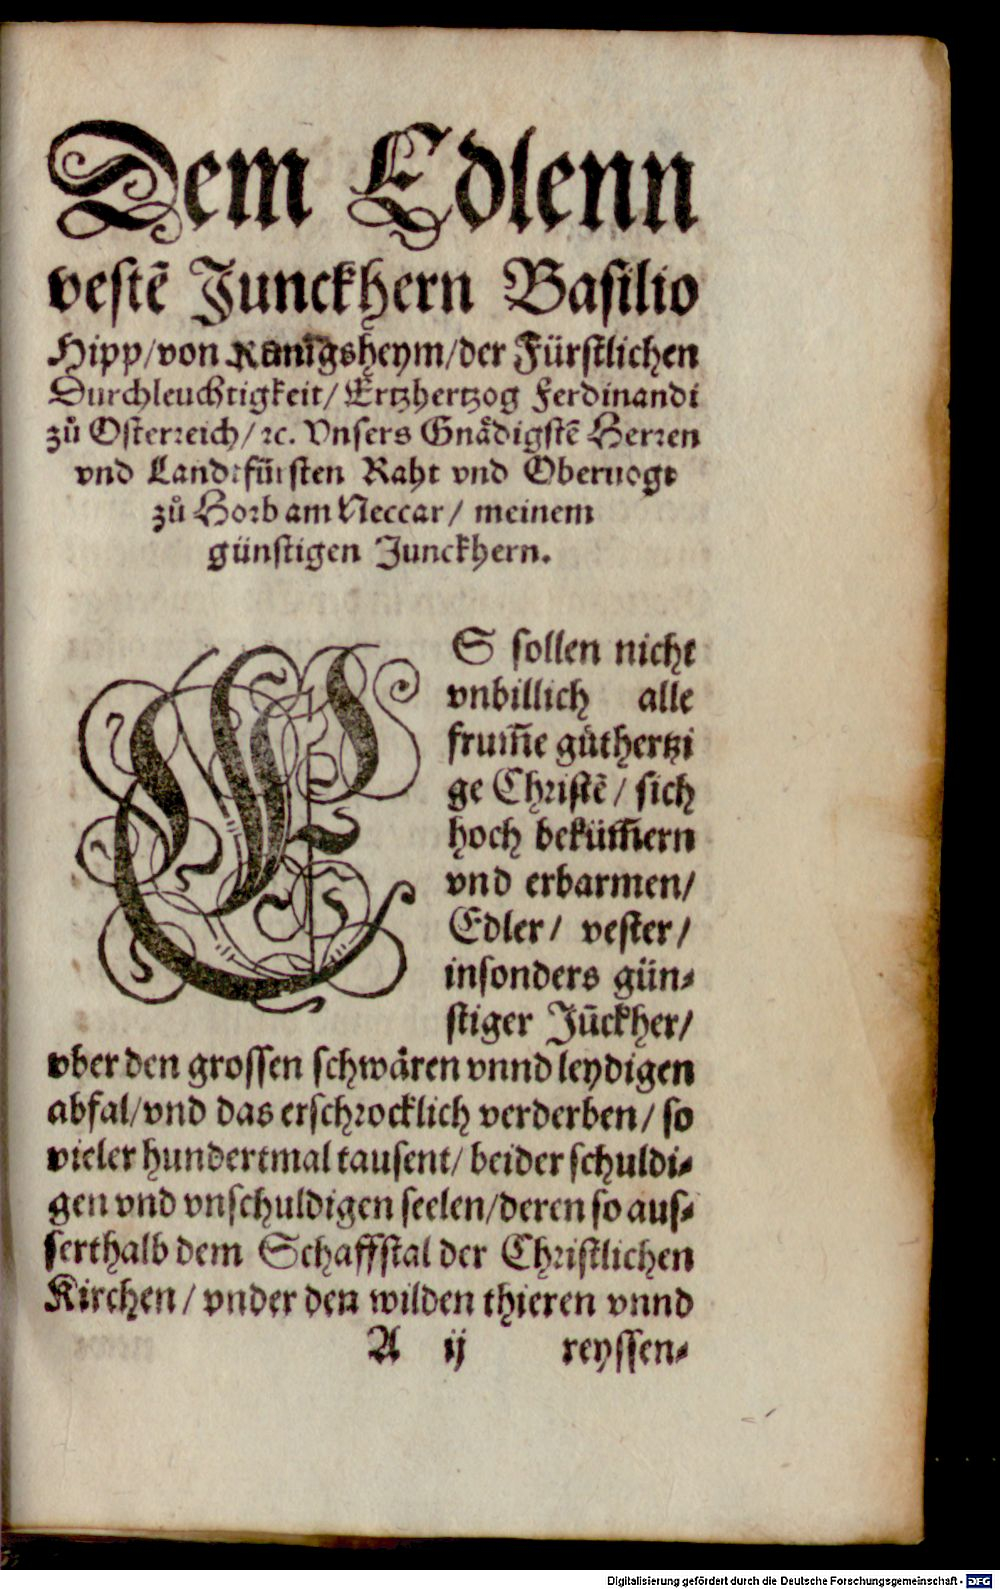 Dem Edlenn
vestē Junckhern Basilio
Hipp/von Ramigsheym/der Fürstlichen
Durchleuchtigkeit/ Ertzhertzog Ferdinandi
zů Osterreich/ ꝛc. Vnsers Gnådigstē Herren
vnd Landtsfürsten Raht vnd Obervogt
zů Horb am Neccar/ meinem
günstigen Junckhern.
ES sollen nicht
vnbillich alle
frum̄e gůthertzi
ge Christē/ sich
hoch beküm̄ern
vnd erbarmen/
Edler/ vester/
insonders gün⸗
stiger Jūckher/
vber den grossen schwåren vnnd leydigen
abfal/vnd das erschrocklich verderben/ so
vieler hundertmal tausent/ beider schuldi⸗
gen vnd vnschuldigen seelen/deren so aus⸗
serthalb dem Schaffstal der Christlichen
Kirchen/ vnder den wilden thieren vnnd
A ij reyssen⸗
Digitalisierung gefördert durch die Deutsche Forschungsgemeinschaft - DFG